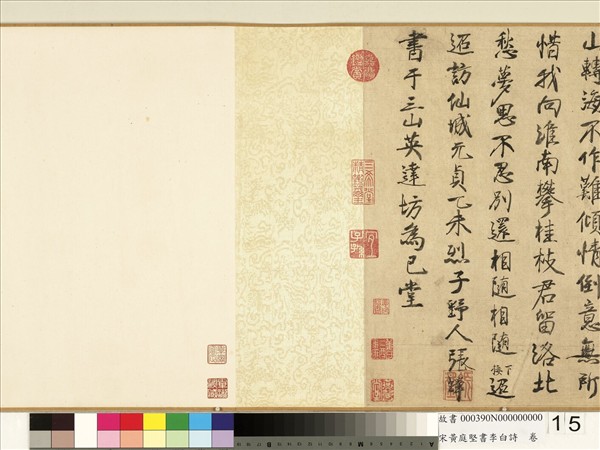 山轉海不作難傾情倒意無所
惜我向淮南攀桂枝君留洛北
愁夢思不忍別還相隨相隨迢
下接
迢訪仙城元貞乙未烈子野人張
書于三山英達坊為己堂
乾隆鑑賞
三希堂精鑑璽
宜子孫
故書 000390N000000000
宋黃庭堅書李白詩 卷
15